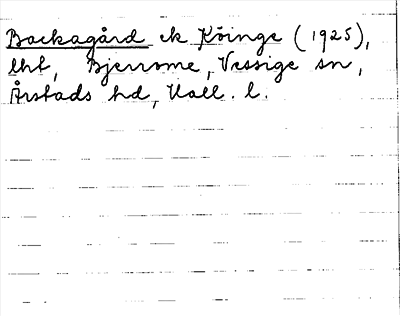 Backagård ek Köinge (1925),
lht, Bjerrome, Vessige sn,
Årstads hd, Hall. l.